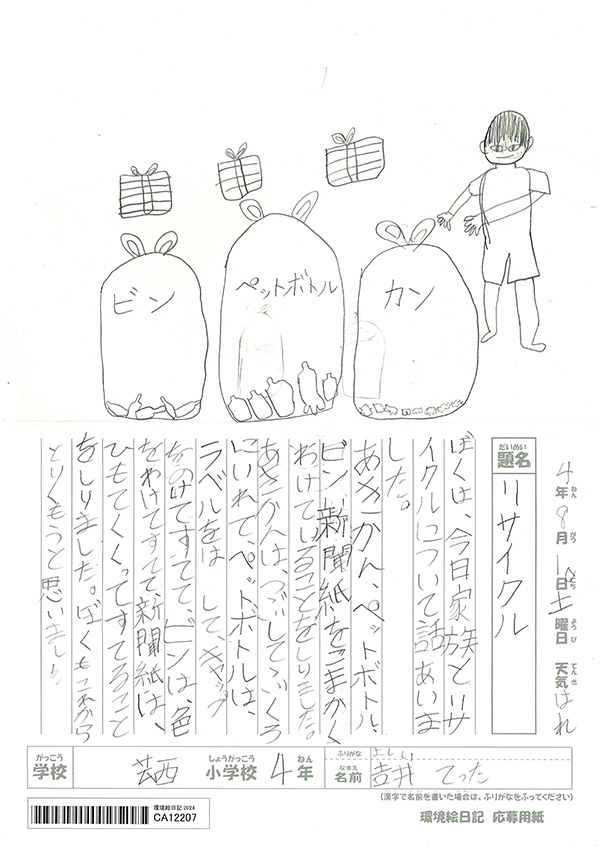 ビン
ペットボトル
カン
4年8月12日土曜日 天気はれ
ねん がつ にち ようび てんき
だいめい
題名
リサイクル
ぼくは、今日家族とリサ
イクルについて話あいま
した。
あきかん、ペットボトル、
ビン、新聞紙をこまかく
わけていることをしりました。
あきかんは、つぶしてふくろ
にいれて、ペットボトルは、
ラベルをは して、キャップ
をのけてすてて、ビンは、色
をわけてすてて新聞紙は、
ひもてくくってすてること
をしりました。ぼくもこれから
とりくもうと思いました
がっこう
学校
しょうがっこう ねん
小学校 4年
ふりがな よしい
なまえ
名前 吉井 てった
(漢字で名前を書いた場合は、ふりがなをふってください)
環境絵日記2024
CA12207
環境絵日記 応募用紙